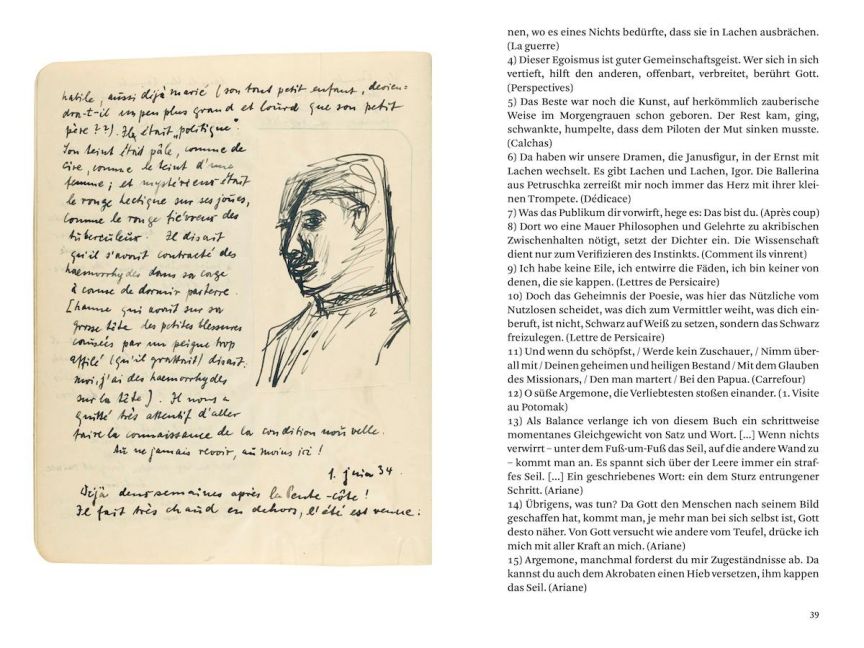 habile, aussi déjà marié (son tout petit enfant, devien-
dra-t-il un peu plus grand et lourd que son petit
père ??). Il était „politique".
Son teint était pâle, comme de
cire, comme le teint d'une
femme; et mystérieux était
le rouge hectique sur ses joues,
comme le rouge fiévreux des
tuberculeux. Il disait
qu'il s'avait contracté des
haemorrhydes dans sa cage
à cause de dormir parterre.
[hanne qui avait sur sa
grosse tête des petites blessures
causées par un peigne trop
affilé (qu'il grattait) disait:
moi, j'ai des haemorrhydes
sur la tête]. Il nous a
quitté très attentif d'aller
faire la connaissance de la condition nouvelle.
Au ne jamais revoir, au moins ici!
1. juin 34.
Déjà deux semaines après la Pente-côte!
Il fait très chaud en dehors, l'été est venue:
nen, wo es eines Nichts bedürfte, dass sie in Lachen ausbrächen.
(La guerre)
4) Dieser Egoismus ist guter Gemeinschaftsgeist. Wer sich in sich
vertieft, hilft den anderen, offenbart, verbreitet, berührt Gott.
(Perspectives)
5) Das Beste war noch die Kunst, auf herkömmlich zauberische
Weise im Morgengrauen schon geboren. Der Rest kam, ging,
schwankte, humpelte, dass dem Piloten der Mut sinken musste.
(Calchas)
6) Da haben wir unsere Dramen, die Janusfigur, in der Ernst mit
Lachen wechselt. Es gibt Lachen und Lachen, Igor. Die Ballerina
aus Petruschka zerreißt mir noch immer das Herz mit ihrer klei-
nen Trompete. (Dédicace)
7) Was das Publikum dir vorwirft, hege es: Das bist du. (Après coup)
8) Dort wo eine Mauer Philosophen und Gelehrte zu akribischen
Zwischenhalten nötigt, setzt der Dichter ein. Die Wissenschaft
dient nur zum Verifizieren des Instinkts. (Comment ils vinrent)
9) Ich habe keine Eile, ich entwirre die Fäden, ich bin keiner von
denen, die sie kappen. (Lettres de Persicaire)
10) Doch das Geheimnis der Poesie, was hier das Nützliche vom
Nutzlosen scheidet, was dich zum Vermittler weiht, was dich ein-
beruft, ist nicht, Schwarz auf Weiß zu setzen, sondern das Schwarz
freizulegen. (Lettre de Persicaire)
11) Und wenn du schöpfst, / Werde kein Zuschauer, / Nimm über-
all mit / Deinen geheimen und heiligen Bestand / Mit dem Glauben
des Missionars, / Den man martert / Bei den Papua. (Carrefour)
12) O süße Argemone, die Verliebtesten stoßen einander. (1. Visite
au Potomak)
13) Als Balance verlange ich von diesem Buch ein schrittweise
momentanes Gleichgewicht von Satz und Wort. [...] Wenn nichts
verwirrt – unter dem Fuß-um-Fuß das Seil, auf die andere Wand zu
– kommt man an. Es spannt sich über der Leere immer ein straf-
fes Seil. [...] Ein geschriebenes Wort: ein dem Sturz entrungener
Schritt. (Ariane)
14) Übrigens, was tun? Da Gott den Menschen nach seinem Bild
geschaffen hat, kommt man, je mehr man bei sich selbst ist, Gott
desto näher. Von Gott versucht wie andere vom Teufel, drücke ich
mich mit aller Kraft an mich. (Ariane)
15) Argemone, manchmal forderst du mir Zugeständnisse ab. Da
kannst du auch dem Akrobaten einen Hieb versetzen, ihm kappen
das Seil. (Ariane)
39